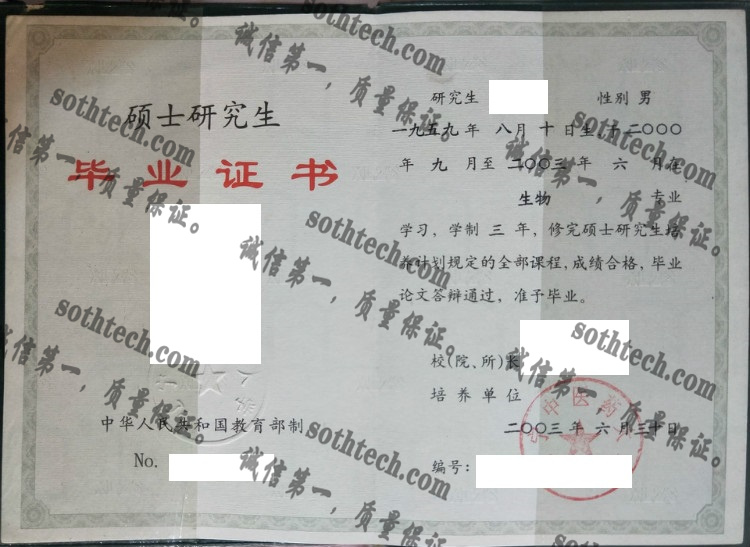 硕士研究生
毕业证书
中华人民共和国教育部制
No.
研究生 性别 男
一九五九年 八月 十日生 于二〇〇〇
年 九 月至 二〇〇三年 六 月在
生物 专业
学习，学制 三 年，修完硕士研究生培
养计划规定的全部课程，成绩合格，毕业
论文答辩通过，准予毕业。
校(院、所)长
培养单位
二〇〇三年 六月三十日
编号：
中医药
sothtech.com
诚信第一，质量保证。
sothtech.com
诚信第一，质量保证。
sothtech.com
诚信第一，质量保证。
sothtech.com
诚信第一，质量保证。
sothtech.com
诚信第一，质量保证。
sothtech.com
诚信第一，质量保证。
sothtech.com
诚信第一，质量保证。
sothtech.com